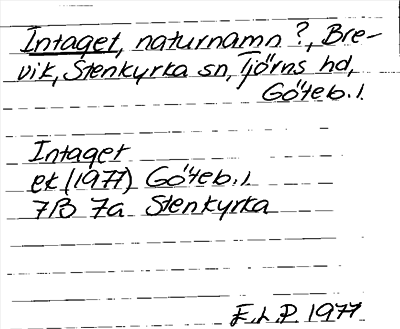 Intaget, naturnamn?, Bre-
vik, Stenkyrka sn, Tjörns hd,
Göteb. l.
Intaget
ek (1977) Göteb. l.
7B 7a Stenkyrka
E.L.P. 1977